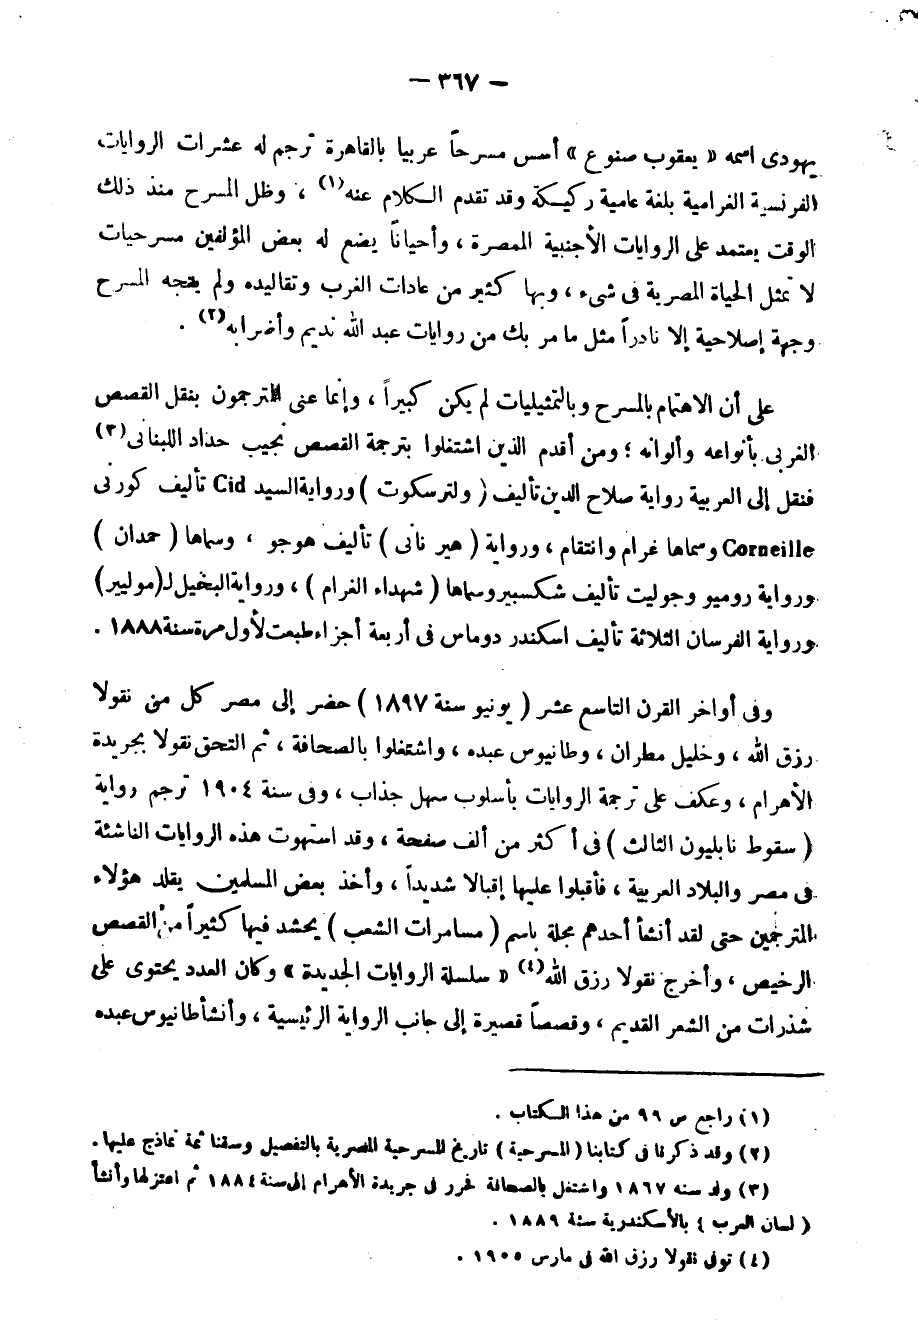 — ٣٦٧ —
يهودى اسمه « يعقوب صنوع » أسس مسرحاً عربيا بالقاهرة ترجم له عشرات الروايات
الفرنسية الغرامية بلغة عامية ركيكة وقد تقدم الكلام عنه(١) ، وظل المسرح منذ ذلك
الوقت يعتمد على الروايات الأجنبية الممصرة ، وأحياناً يضع له بعض المؤلفين مسرحيات
لا تمثل الحياة المصرية فى شىء ، وبها كثير من عادات الغرب وتقاليده ولم يتجه المسرح
وجهة إصلاحية إلا نادراً مثل ما مر بك من روايات عبد الله نديم وأضرابه(٢) .
على أن الاهتمام بالمسرح وبالتمثيليات لم يكن كبيراً ، وإنما عنى المترجمون بنقل القصص
الغربى بأنواعه وألوانه ؛ ومن أقدم الذين اشتغلوا بترجمة القصص نجيب حداد اللبنانى(٣)
فنقل إلى العربية رواية صلاح الدين تأليف ( ولتر سكوت ) ورواية السيد Cid تأليف كورنى
Corneille وسماها غرام وانتقام ، ورواية ( هير نانى ) تأليف هوجو ، وسماها ( حمدان )
ورواية روميو وجوليت تأليف شكسبير وسماها ( شهداء الغرام ) ، ورواية البخيل لـ (موليير)
ورواية الفرسان الثلاثة تأليف اسكندر دوماس فى أربعة أجزاء طبعت لأول مرة سنة ١٨٨٨ .
وفى أواخر القرن التاسع عشر ( يونيو سنة ١٨٩٧ ) حضر إلى مصر كل من نقولا
رزق الله ، وخليل مطران ، وطانيوس عبده ، واشتغلوا بالصحافة ، ثم التحق نقولا بجريدة
الأهرام ، وعكف على ترجمة الروايات بأسلوب سهل جذاب ، وفى سنة ١٩٠٤ ترجم رواية
( سقوط نابليون الثالث ) فى أكثر من ألف صفحة ، وقد استهوت هذه الروايات الناشئة
فى مصر والبلاد العربية ، فأقبلوا عليها إقبالا شديداً ، وأخذ بعض المسلمين يقلد هؤلاء
المترجمين حتى لقد أنشأ أحدهم مجلة باسم ( مسامرات الشعب ) يحشد فيها كثيراً من القصص
الرخيص ، وأخرج نقولا رزق الله(٤) « سلسلة الروايات الجديدة » وكان العدد يحتوى على
شذرات من الشعر القديم ، وقصصاً قصيرة إلى جانب الرواية الرئيسية ، وأنشأ طانيوس عبده
(١) راجع ص ٩٩ من هذا الكتاب .
(٢) وقد ذكرنا فى كتابنا ( المسرحية ) تاريخ المسرحية المصرية بالتفصيل وسقنا ثمة نماذج عليها .
(٣) ولد سنه ١٨٦٧ واشتغل بالصحافة فحرر فى جريدة الأهرام إلى سنة ١٨٨٤ ثم اعتزلها وأنشأ
( لسان العرب ) بالأسكندرية سنة ١٨٨٩ .
(٤) توفى نقولا رزق الله فى مارس ١٩٠٥ .